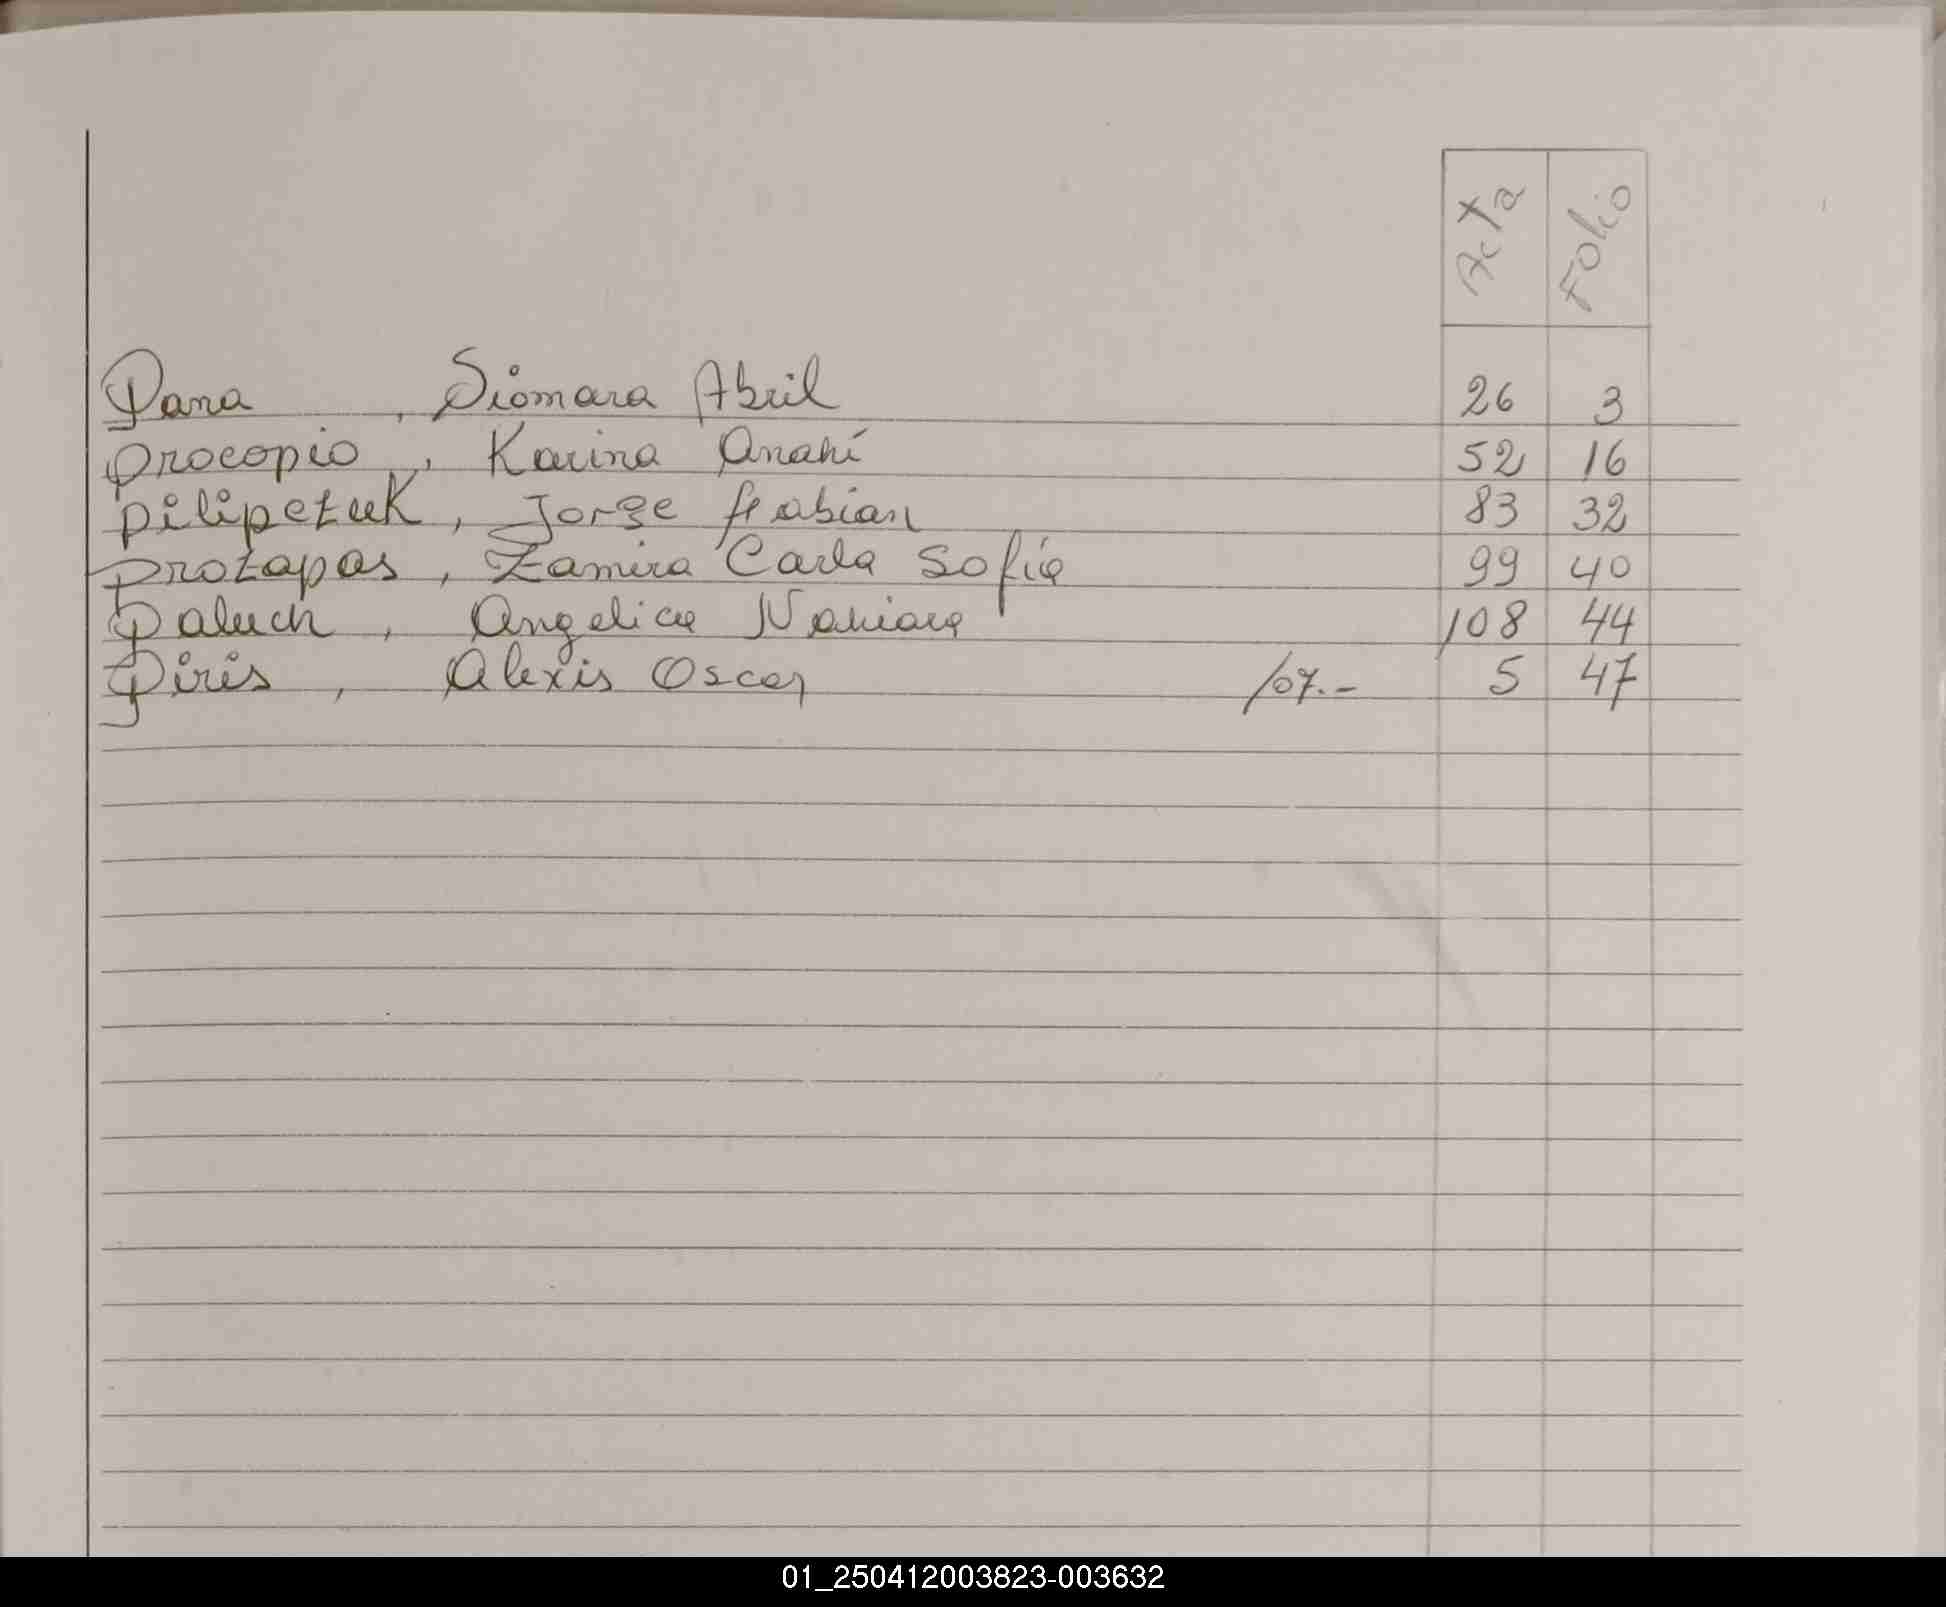 Acta Folio
Pana , Siomara Abril 26 3
Procopio , Karina Anahí 52 16
Pilipetuk , Jorge Fabian 83 32
Protapas , Zamira Carla Sofía 99 40
Paluch , Angelica Nahiara 108 44
Piris , Alexis Oscar /07.- 5 47
01_250412003823-003632